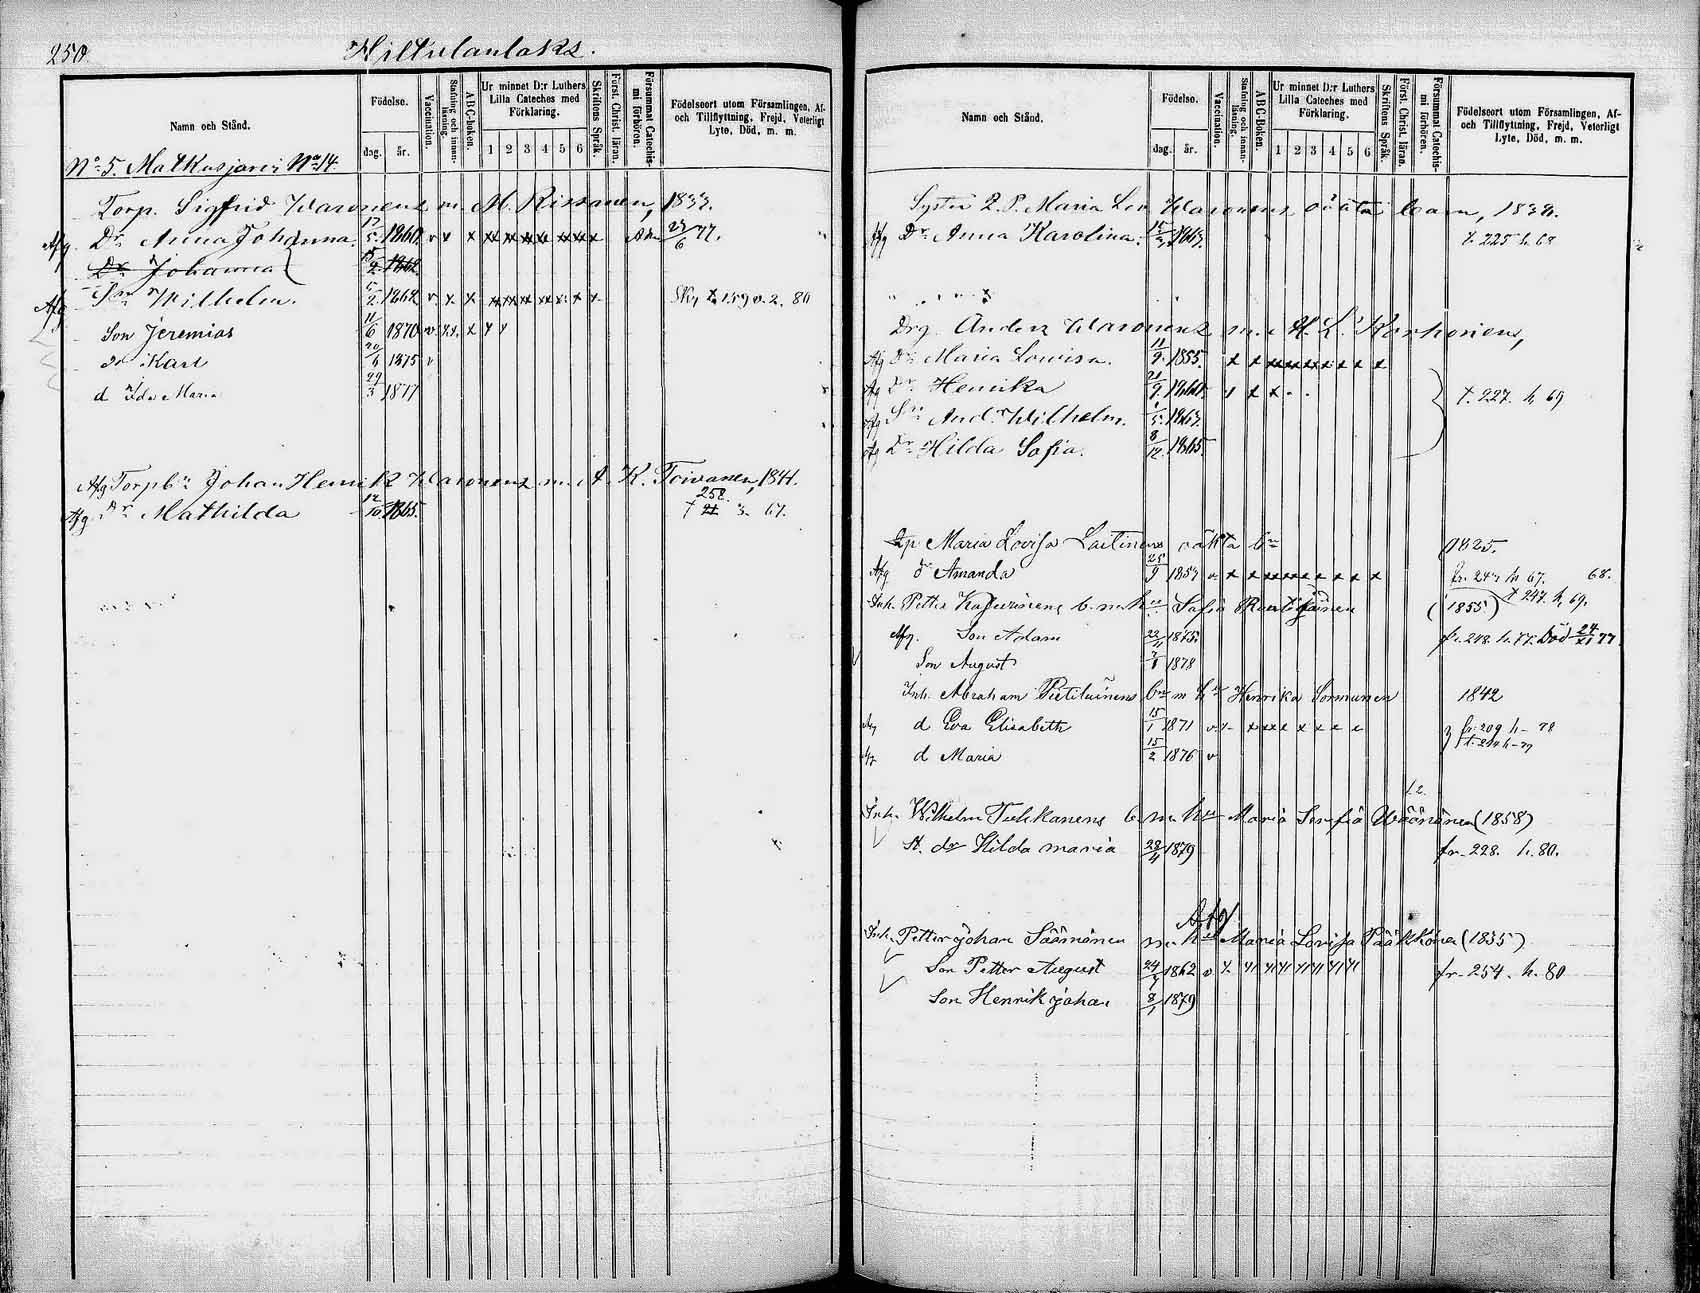 250.
Hiltulanlaks.
Namn och Stånd.
Födelse.
dag. år.
Vaccination.
Stafning och innanläsning.
ABC-boken.
Ur minnet D:r Luthers Lilla Cateches med Förklaring.
1 2 3 4 5 6
Skriftens Språk.
Först. Christ. läran.
Försummat Catechismi förhören.
Födelseort utom Församlingen, Af- och Tillflyttning, Frejd, Veterligt Lyte, Död, m. m.
No 5. Matkusjärvi No 14.
Torp. Sigfrid Waronens m. M. Rissanen, 1833.
Afg. Dr Anna Johanna. 5. 1860. v x x 23/6 77.
Dr Johanna 2. 1862.
Afg Sn Wilhelm. 5/2 1862 v. x x t. 159 v. 2. 80
Son Jeremias 11/6 1870 v
Karl 20/6 1875 v
d Ida Maria 29/3 1877
Afg Torpbn Johan Henrik Waronens m. A. K. Toivanen, 1841.
Afg. Dr Mathilda 12/10 1865. 258. 67.
Namn och Stånd.
Födelse.
dag. år.
Vaccination.
Stafning och innanläsning.
ABC-Boken.
Ur minnet D:r Luthers Lilla Cateches med Förklaring.
1 2 3 4 5 6
Skriftens Språk.
Först. Christ. läran.
Försummat Catechismi förhören.
Födelseort utom Församlingen, Af- och Tillflyttning, Frejd, Veterligt Lyte, Död, m. m.
Maria Lov Waronens oäkta barn, 1838.
Afg Dr Anna Karolina. 1863. t. 225 h. 68
Drg Anders Waronens m. A. L. Korhonen,
Afg Dr Maria Lowisa. 11/9. 1855. x x
Afg Dr Henrika 21/9. 1860. x x
t. 227. h. 69
Afg Sn And. Wilhelm. 1/5. 1863.
Afg Dr Hilda Sofia. 8/12. 1865.
Maria Lovisa Laitinens oäkta bn 1825.
Afg dr Amanda 25/9 1853 v. x x fr. 247 h. 67. 68.
t 247. h. 69.
Inh. Petter b. m. h. Sofia (1855)
Afg. Son Adam 22/11 1875 fr. 248. h. 77. Död 24/11 77
Son August 7/8 1878
Inh. Abraham bn m hu Henrika Sormunen 1842
Afg d Eva Elisabeth 15/1 1871 v. fr. 209 h- 78
d Maria 15/2 1876 v
Inh. Wilhelm Tuhkanens b. m. hu Maria Sofia Wäänänen (1858)
dr Hilda Maria 28/4 1879 fr. 228. h. 80.
Afg
Inh. Petter Johan Säämänen m. hu Maria Lovisa Pääkkönen (1835)
Son Petter August 24/7 1862 v fr- 254. h. 80
Son Henrik Johan 8/1 1879